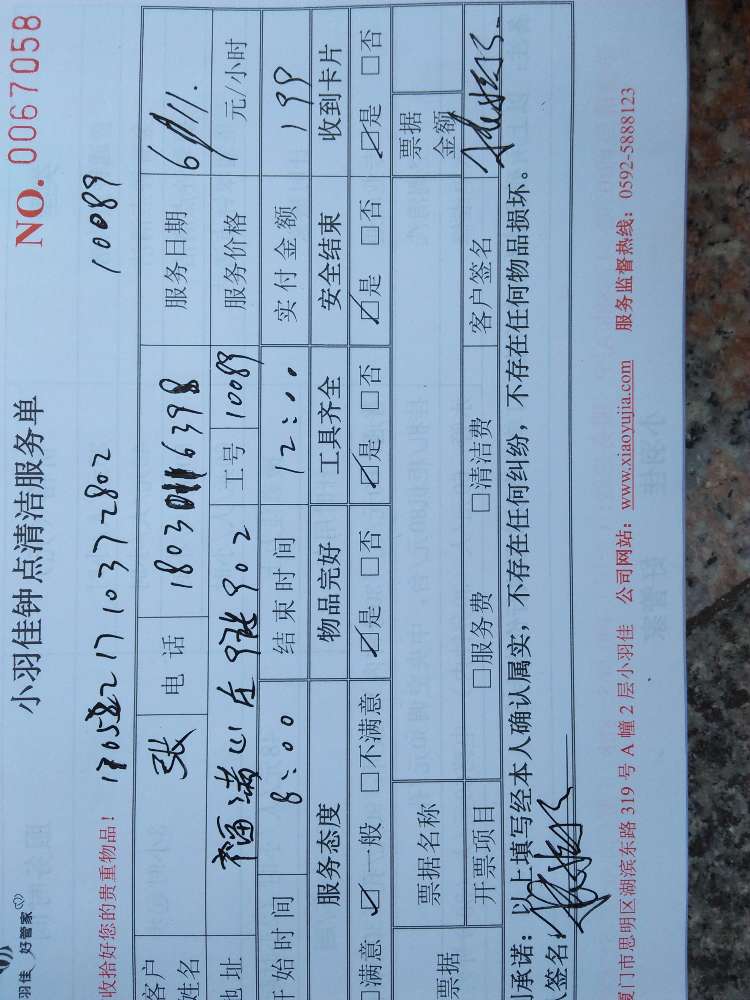 羽佳 好管家
小羽佳钟点清洁服务单
NO. 0067058
收拾好您的贵重物品!
2171037 2802
10089
客户姓名 张 电话 服务日期
地址 902 工号 10089 服务价格 元/小时
开始时间 8:00 结束时间 12:00 实付金额 199
服务态度 物品完好 工具齐全 安全结束 收到卡片
□满意 ☑一般 □不满意 ☑是 □否 ☑是 □否 ☑是 □否 ☑是 □否
票据 票据名称 票据金额
开票项目 □服务费 □清洁费 客户签名
承诺:以上填写经本人确认属实,不存在任何纠纷,不存在任何物品损坏。
签名:
厦门市思明区湖滨东路 319 号 A 幢 2 层小羽佳 公司网站:www.xiaoyujia.com 服务监督热线:0592-5888123